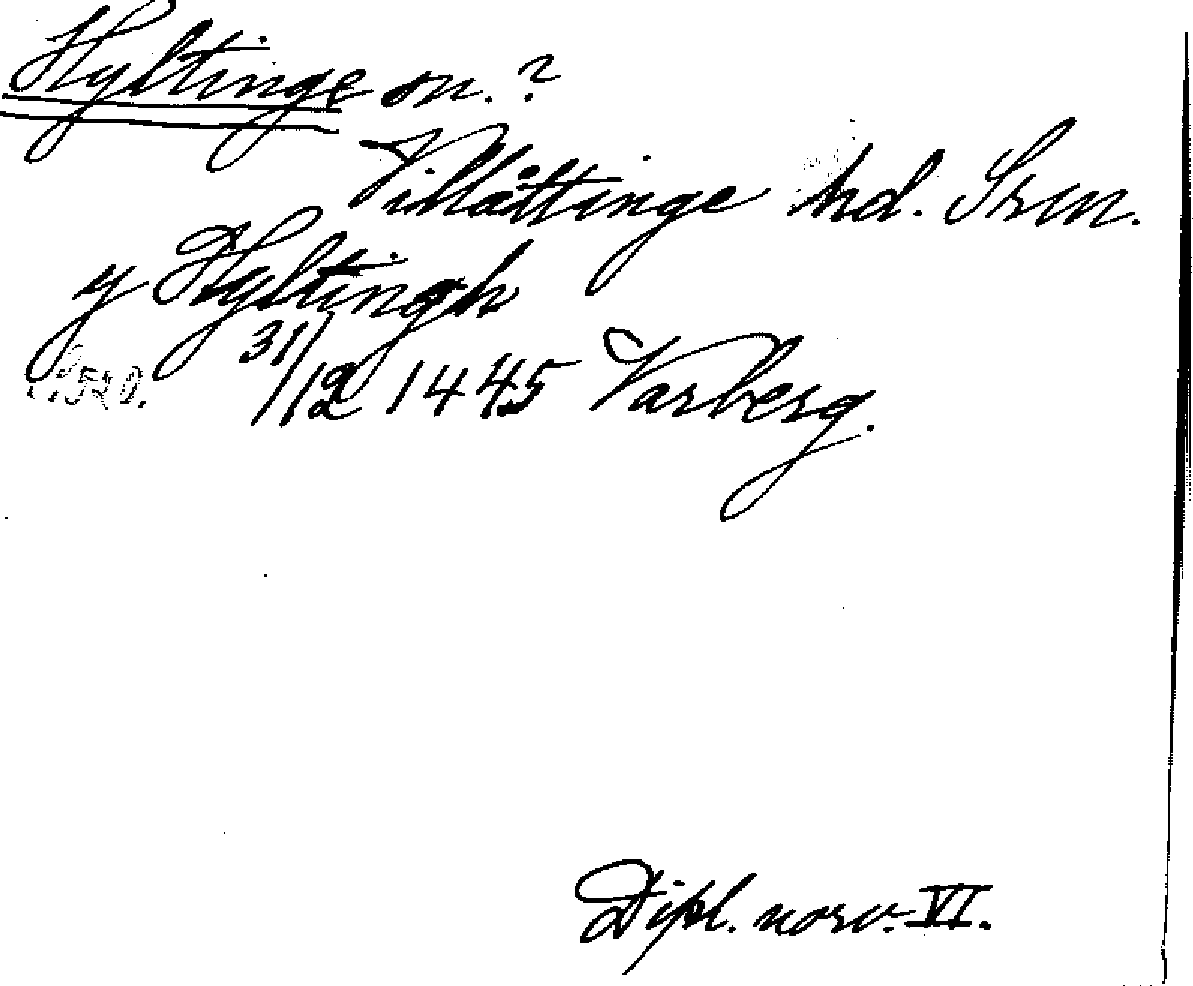 Hyltinge sn.?
Villåttinge hd. Srm.
y Hyltingh
31/12 1445 Varberg.
s. 520.
Dipl. norv. VI.